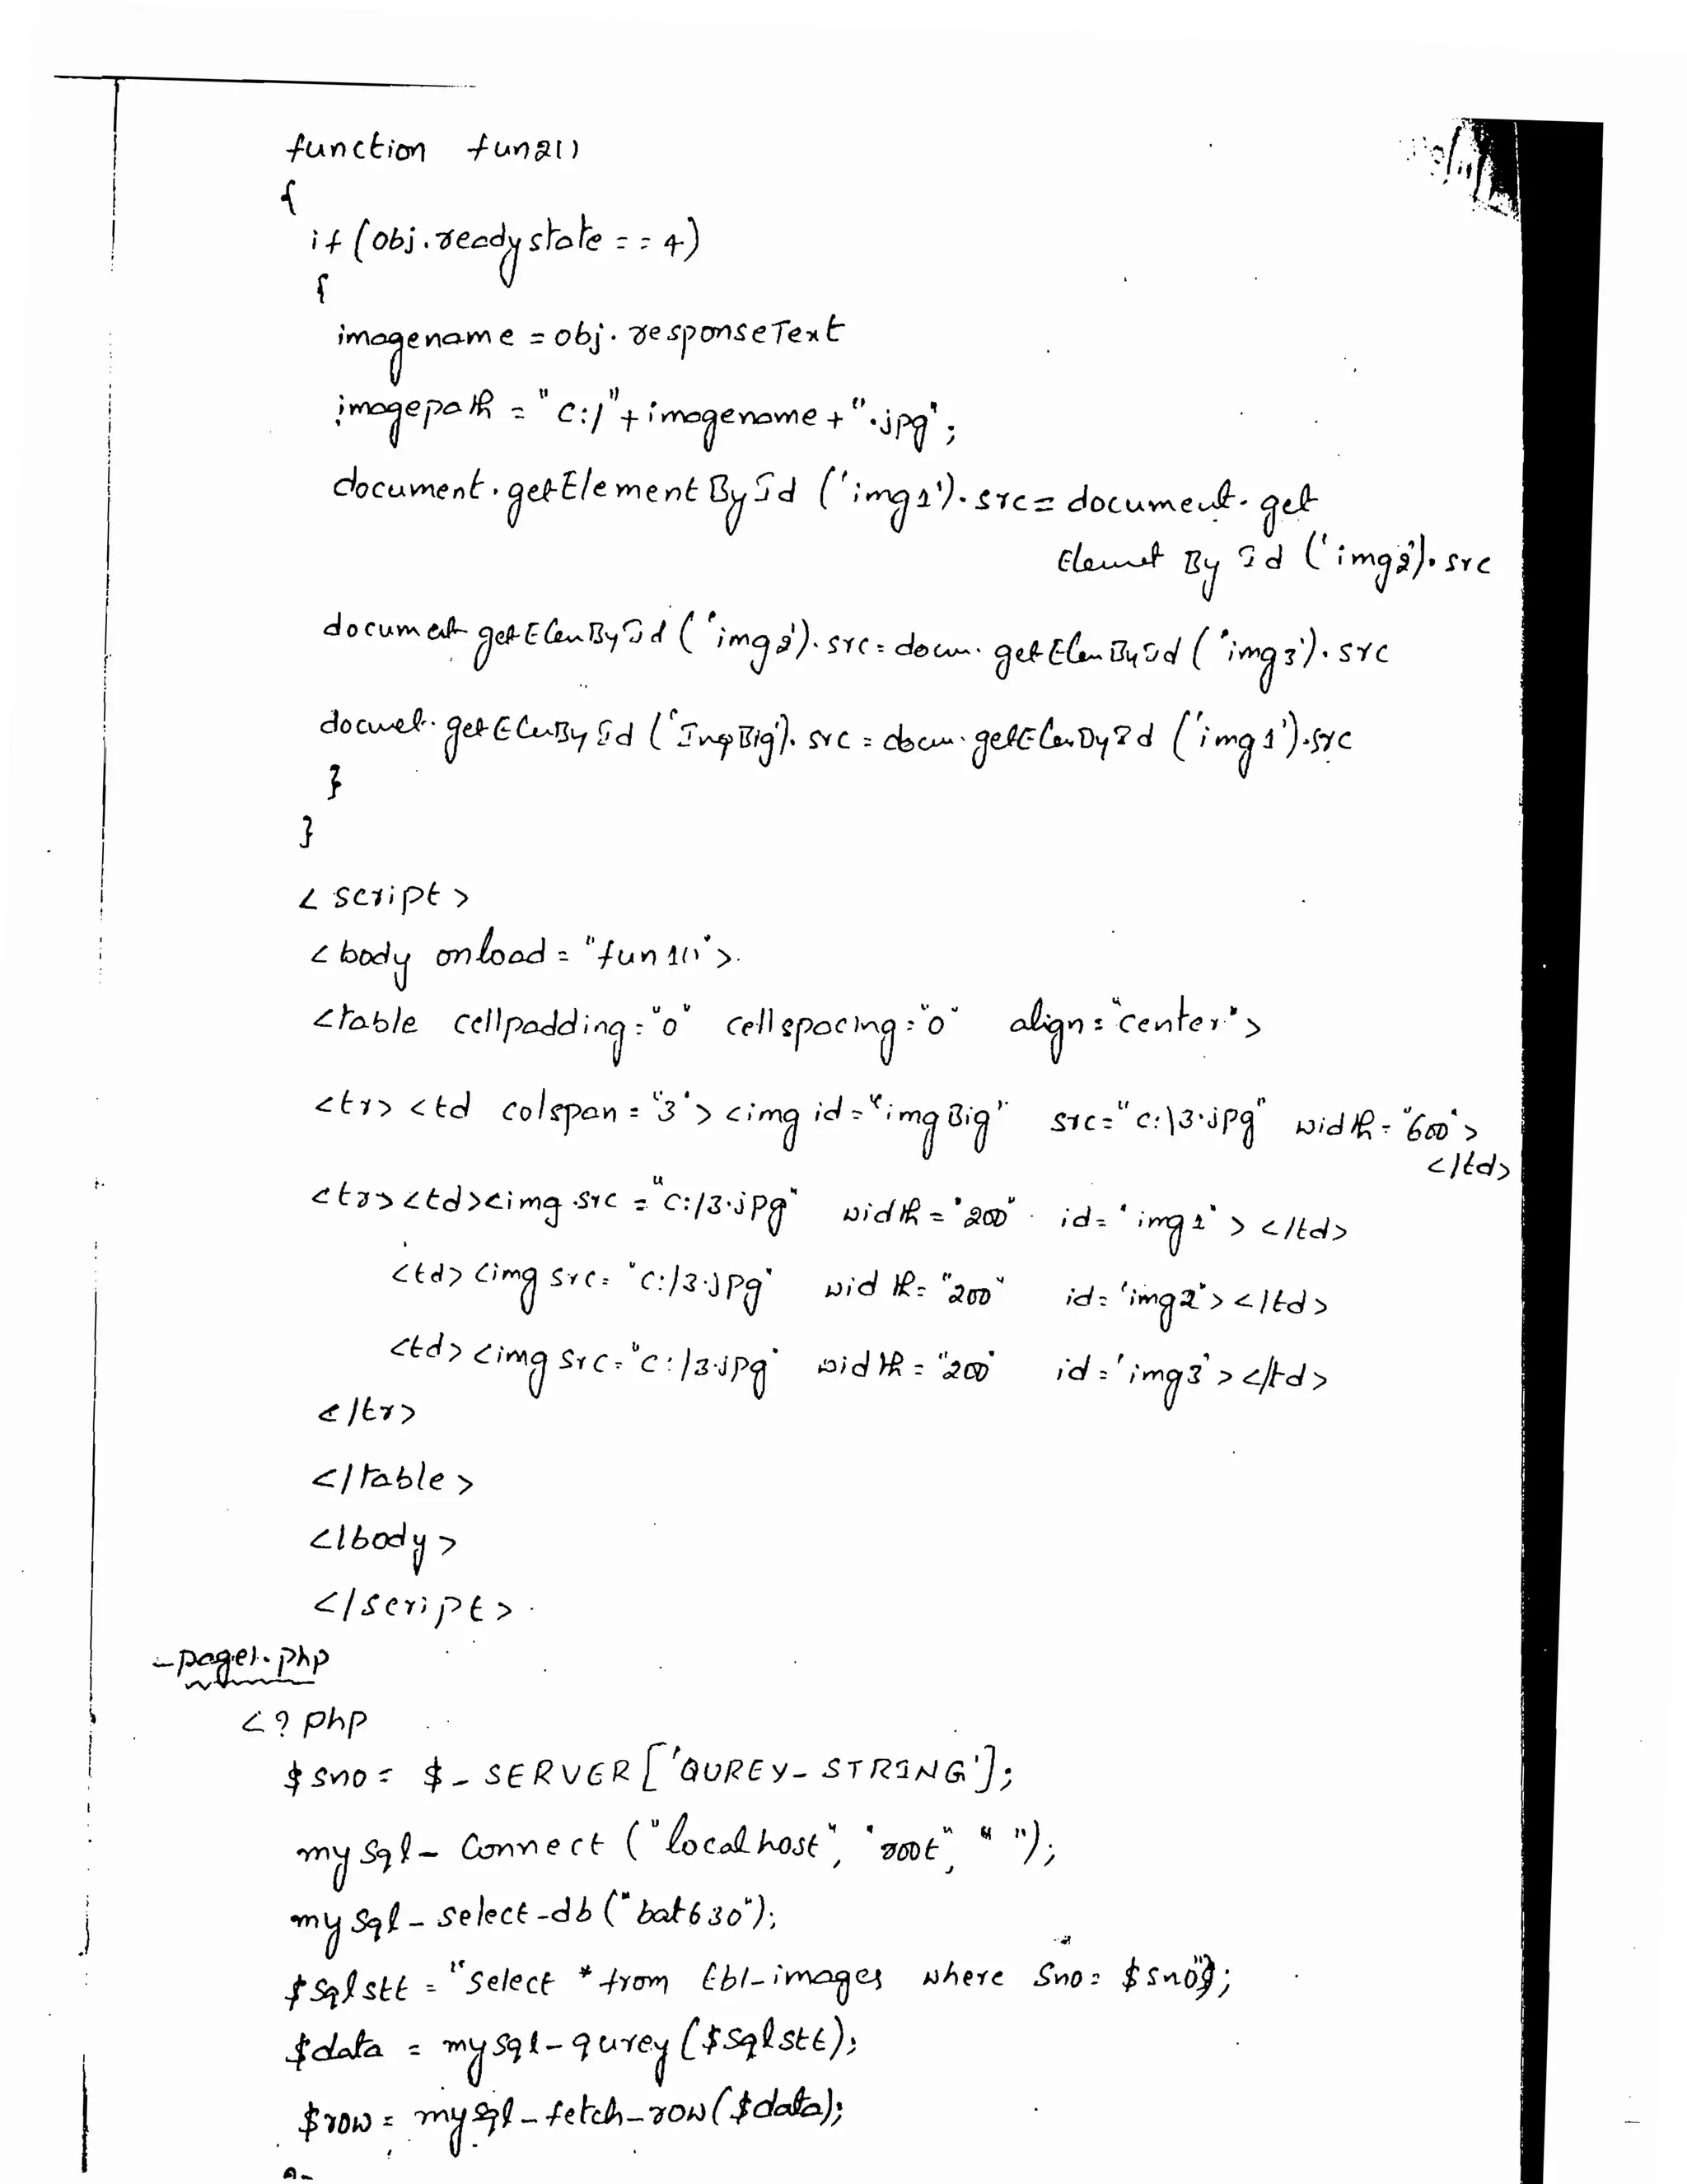 function fun2()
{
if (obj.readystate == 4)
{
imagename = obj.responseText
imagepath = "C:/"+imagename+".jpg";
document.getElementById ('img1').src = document.get
Elemet By Id ('img2').src
document getElenById ('img2').src = docum. getElenById ('img3').src
documet. getElenById ('ImgBig').src = docum. getElenById ('img1').src
}
}
< script >
< body onload = "fun1()">
<table cellpadding="0" cellspacing="0" align="center">
<tr> <td colspan = "3"> <img id="imgBig" src="c:\3.jpg" width="600">
</td>
<tr><td><img src = "c:/3.jpg" width = "200" id= "img1"> </td>
<td> <img src= "c:/3.jpg" width= "200" id= 'img2"> </td>
<td> <img src="c:/3.jpg" width = "200" id ='img3"> </td>
</tr>
</table>
</body>
</script>
- page1.php
<? php
$sno = $_SERVER['QUREY_STRING'];
mysql_connect ("localhost", "root", " ");
mysql_select_db ("bat630");
$sqlstt = "select * from tbl_images where Sno= $sno";
$data = mysql_qurey ($sqlstt);
$row = mysql_fetch_row($data);